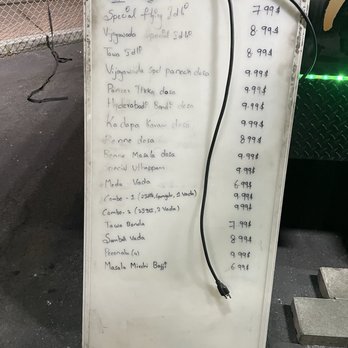 Special flying Idli 7.99$
Vijayawada Special Idli 8.99$
Tawa Idli 8.99$
Vijayawada Spcl panach dosa 9.99$
Paneer dosa 9.99$
Hyderabadi Bandi dosa 9.99$
Kadapa Karam dosa 9.99$
Benne dosa 8.99$
Benne Masala dosa 9.99$
Special Uthappam 9.99$
Medu Vada 6.99$
Combo-1 (2 Idli, 1 Vada) 9.99$
Combo-2 (2 Idli, 2 Vada) 9.99$
Tawa Bonda 7.99$
Sambar Vada 8.99$
9.99$
Masala Mirchi Bajji 6.99$